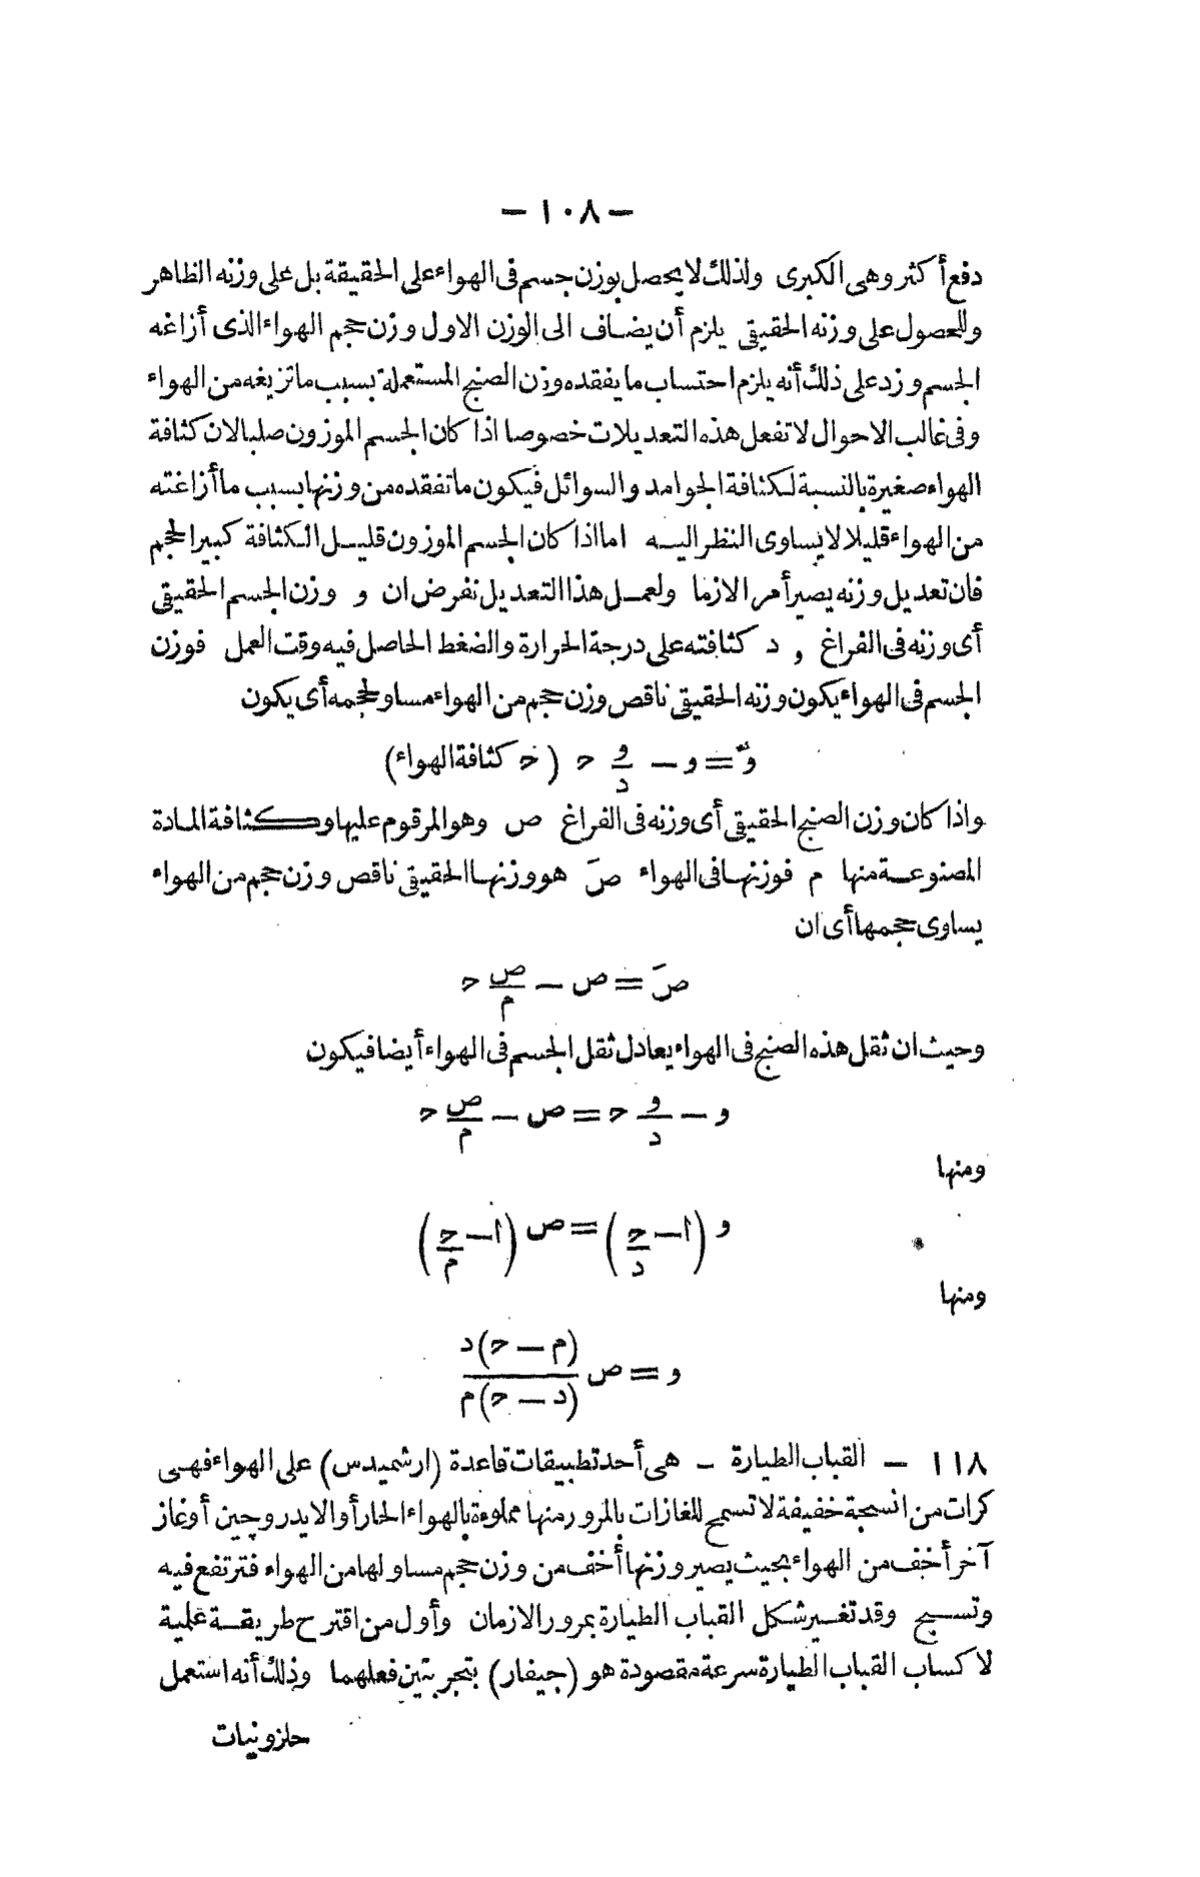 — ١٠٨ —
دفع أكثر وهى الكبرى ولذلك لا يحصل بوزن جسم فى الهواء على الحقيقة بل على وزنه الظاهر
وللحصول على وزنه الحقيقى يلزم أن يضاف الى الوزن الاول وزن حجم الهواء الذى أزاغه
الجسم وزد على ذلك أنه يلزم احتساب ما يفقده وزن الصنج المستعملة بسبب ما تزيغه من الهواء
وفى غالب الاحوال لا تفعل هذه التعديلات خصوصا اذا كان الجسم الموزون صلبا لان كثافة
الهواء صغيرة بالنسبة لكثافة الجوامد والسوائل فيكون ما تفقده من وزنها بسبب ما أزاغته
من الهواء قليلا لا يساوى النظر اليه اما اذا كان الجسم الموزون قليل الكثافة كبير الحجم
فان تعديل وزنه يصير أمرا لازما ولعمل هذا التعديل نفرض ان و وزن الجسم الحقيقى
أى وزنه فى الفراغ و د كثافته على درجة الحرارة والضغط الحاصل فيه وقت العمل فوزن
الجسم فى الهواء يكون وزنه الحقيقى ناقص وزن حجم من الهواء مساو لحجمه أى يكون
وَ = و — و/د ح (ح كثافة الهواء)
واذا كان وزن الصنج الحقيقى أى وزنه فى الفراغ ص وهو المرقوم عليها وكثافة المادة
المصنوعة منها م فوزنها فى الهواء صَ هو وزنها الحقيقى ناقص وزن حجم من الهواء
يساوى حجمها أى ان
صَ = ص — ص/م ح
وحيث ان ثقل هذه الصنج فى الهواء يعادل ثقل الجسم فى الهواء أيضا فيكون
و — و/د ح = ص — ص/م ح
ومنها
و (١ — ح/د) = ص (١ — ح/م)
ومنها
و = ص (م — ح) د / (د — ح) م
١١٨ — القباب الطيارة — هى أحد تطبيقات قاعدة (ارشميدس) على الهواء فهى
كرات من انسجة خفيفة لا تسمح للغازات بالمرور منها مملوءة بالهواء الحار أو الايدروچين أو غاز
آخر أخف من الهواء بحيث يصير وزنها أخف من وزن حجم مساو لها من الهواء فترتفع فيه
وتسبح وقد تغير شكل القباب الطيارة بمرور الازمان وأول من اقترح طريقة علمية
لا كساب القباب الطيارة سرعة مقصودة هو (جيفار) بتجربتين فعلهما وذلك أنه استعمل
حلزونيات